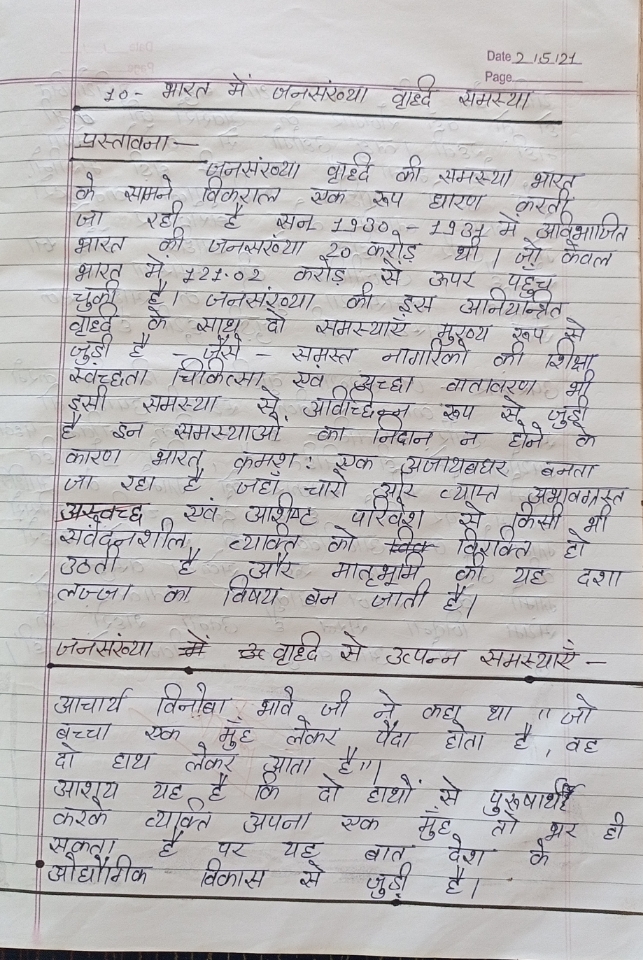 Date 2/5/21
Page
10- भारत में जनसंख्या वृद्धि समस्या
प्रस्तावना —
जनसंख्या वृद्धि की समस्या भारत
के सामने विकराल एक रूप धारण करती
जा रही है सन् 1930 - 1931 में अविभाजित
भारत की जनसंख्या 20 करोड़ थी। जो केवल
भारत में 121.02 करोड़ से ऊपर पहुँच
चुकी है। जनसंख्या की इस अनियन्त्रित
वृद्धि के साथ दो समस्याएँ मुख्य रूप से
जुड़ी है - जैसे - समस्त नागरिकों की शिक्षा
स्वच्छता चिकित्सा एवं अच्छा वातावरण भी
इसी समस्या से अविच्छिन्न रूप से जुड़ी
है इन समस्याओं का निदान न होने के
कारण भारत क्रमश: एक अजायबघर बनता
जा रहा है जहाँ चारो ओर व्याप्त अभावग्रस्त
अस्वच्छ एवं अशिष्ट परिवेश से किसी भी
संवेदनशील व्यक्ति को विरक्ति हो
उठती है और मातृभूमि की यह दशा
लज्जा का विषय बन जाती है।
जनसंख्या में वृद्धि से उत्पन्न समस्याएँ —
आचार्य विनोबा भावे जी ने कहा था "जो
बच्चा एक मुँह लेकर पैदा होता है, वह
दो हाथ लेकर आता है"।
आशय यह है कि दो हाथों से पुरूषार्थ
करके व्यक्ति अपना एक मुँह तो भर ही
सकता है पर यह बात देश के
औद्योगिक विकास से जुड़ी है।